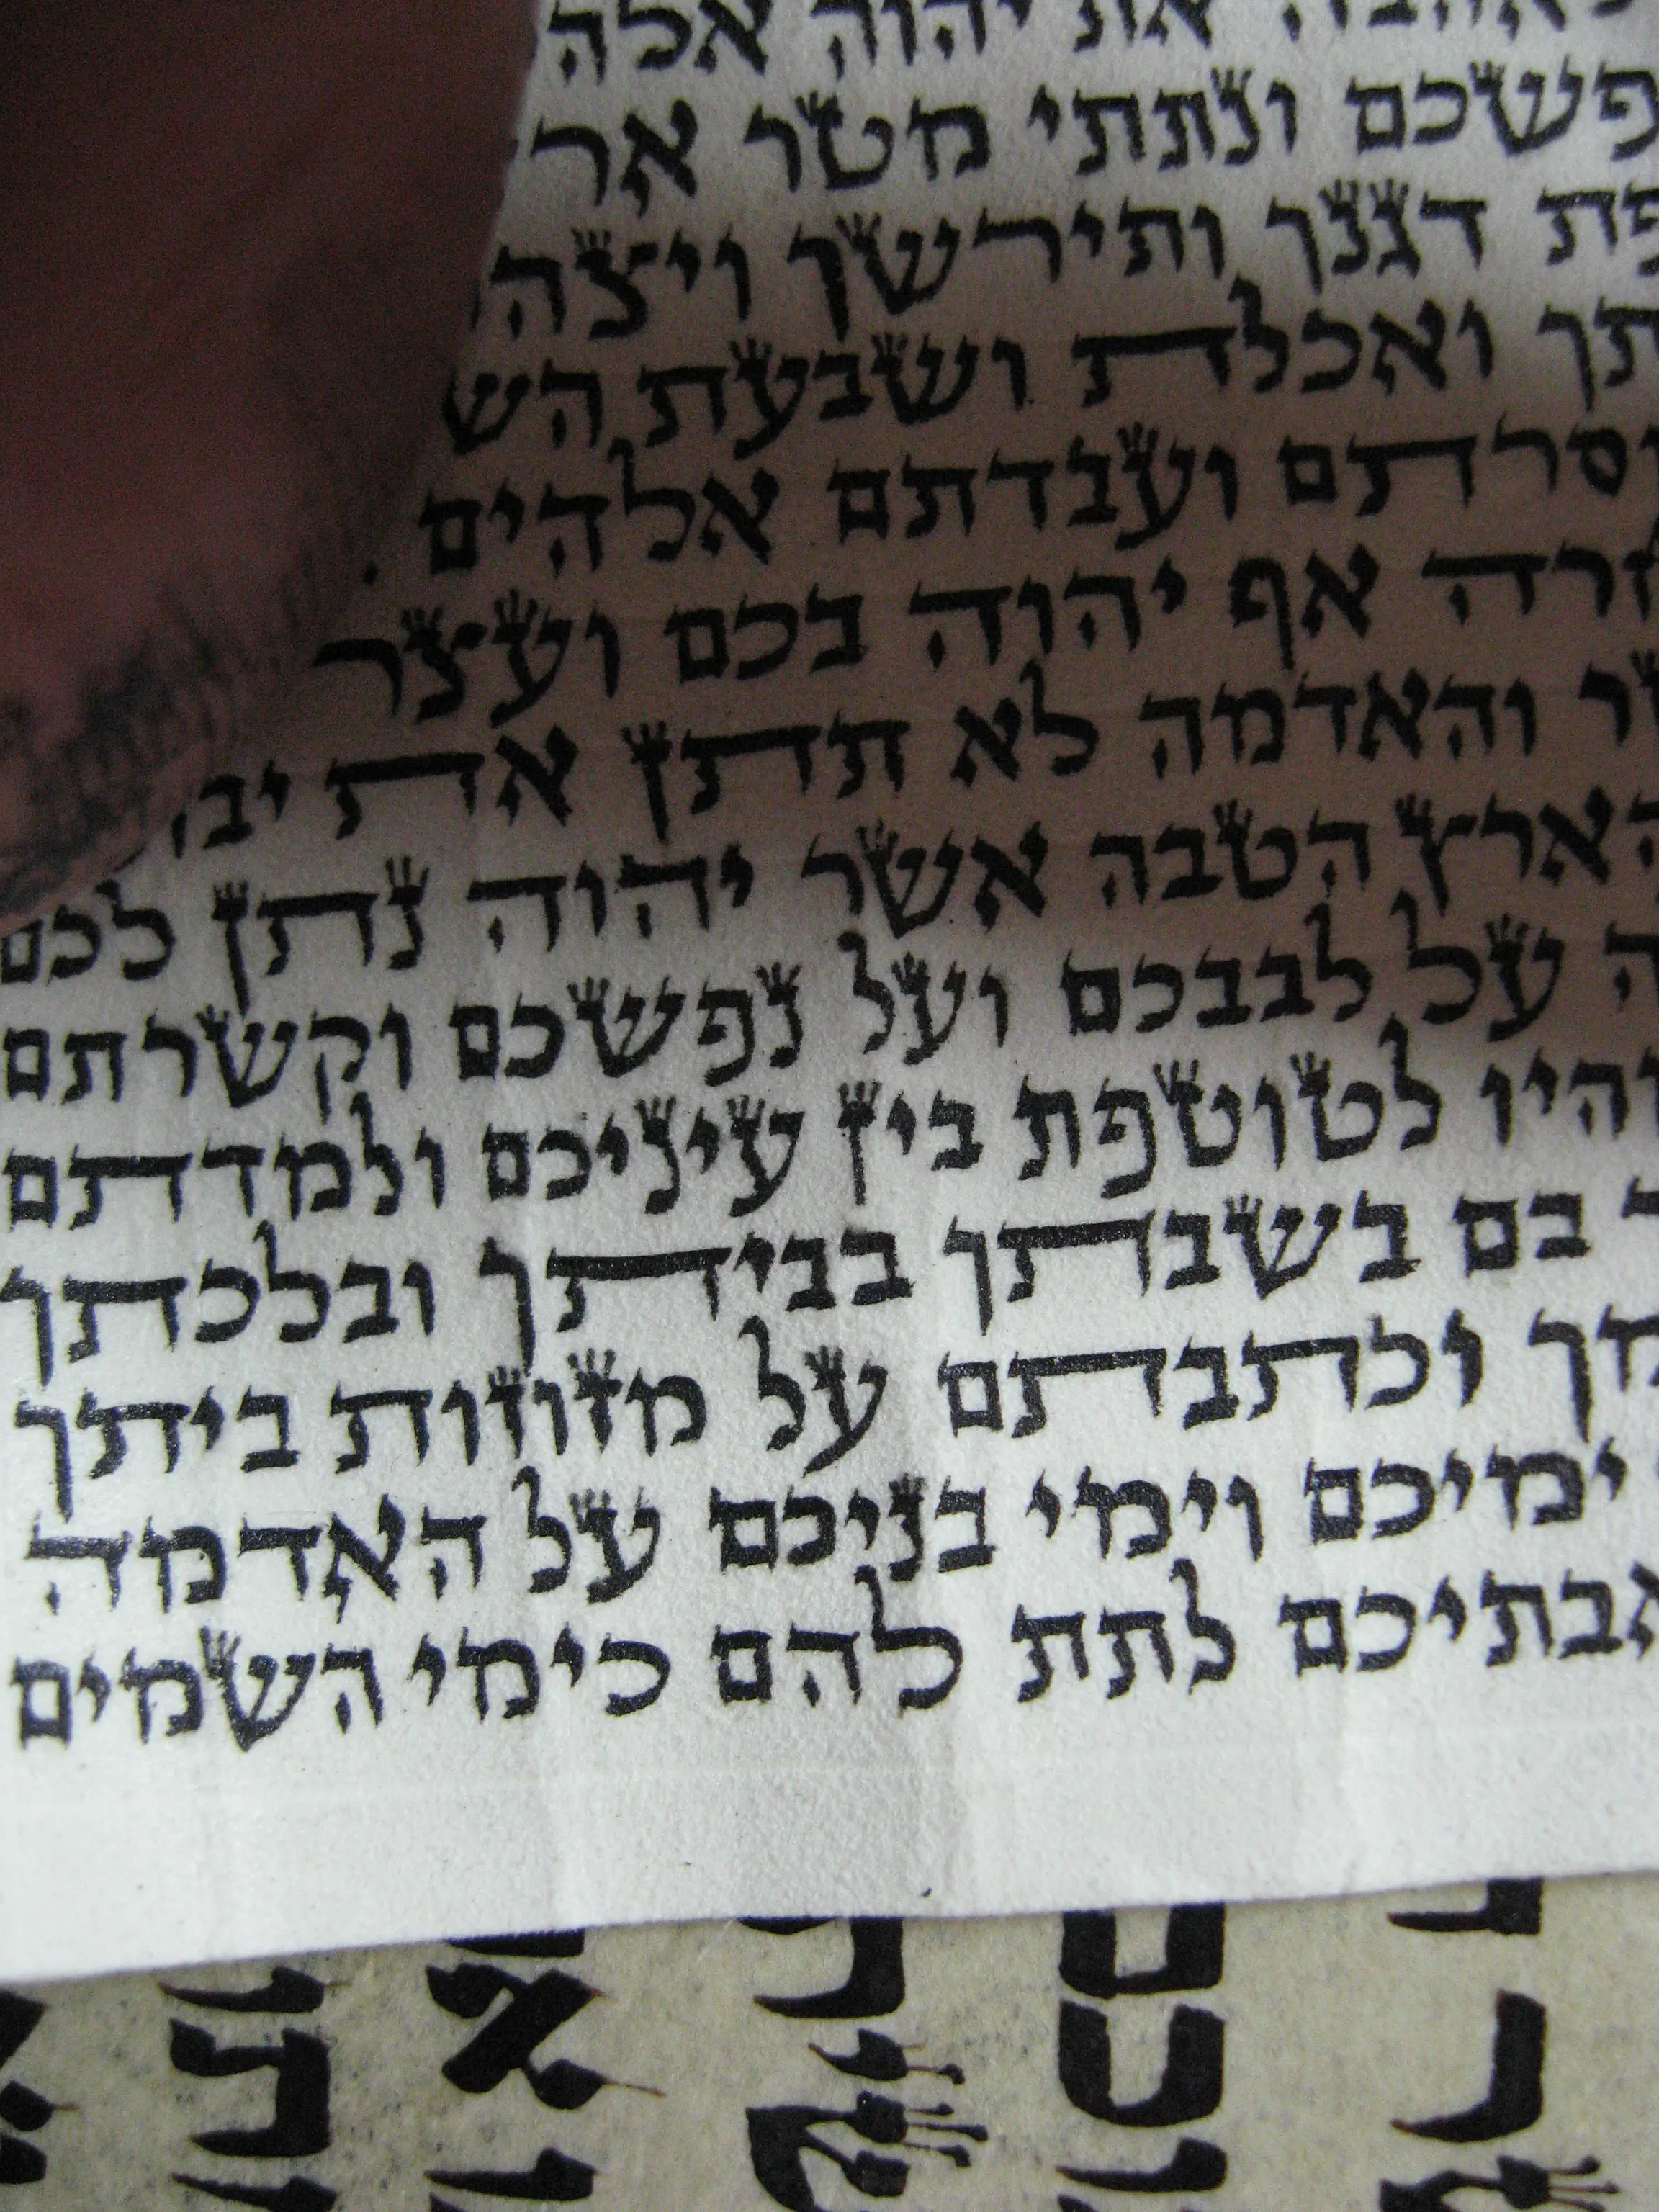 לאהבה את יהוה אלה
פשכם ונתתי מטר אר
דגנך ותירשך ויצה
ואכלת ושבעת הש
וסרתם ועבדתם אלהים
אף יהוה בכם ועצר
והאדמה לא תתן את יב
הארץ הטבה אשר יהוה נתן לכם
על לבבכם ועל נפשכם וקשרתם
והיו לטוטפת בין עיניכם ולמדתם
בם בשבתך בביתך ובלכתך
וכתבתם על מזוזות ביתך
ימיכם וימי בניכם על האדמה
אבתיכם לתת להם כימי השמים